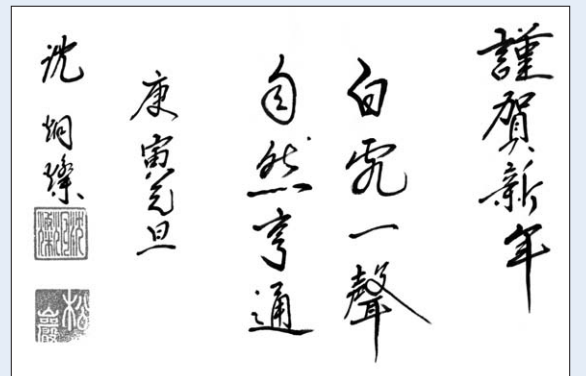 謹賀新年
白虎一聲
自然亨通
庚寅元旦
沈炯燦
松巖